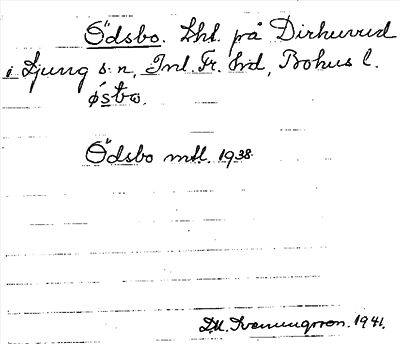 Ödsbo. Lht. på Dirhuvud
i Ljung s n, Inl. Fr. hd, Bohus l.
Ödsbo mtl. 1938.
D. U. 1941.